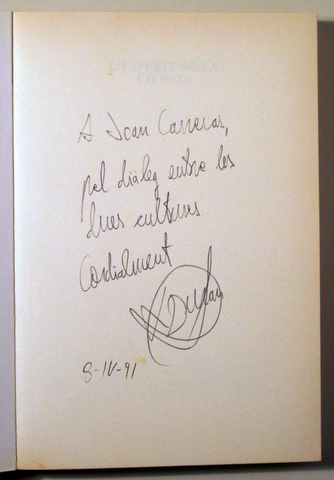 L'ESPERIT DE LA
CIÈNCIA
A Joan Carreras,
pel diàleg entre les
dues cultures
Cordialment
8-IV-91